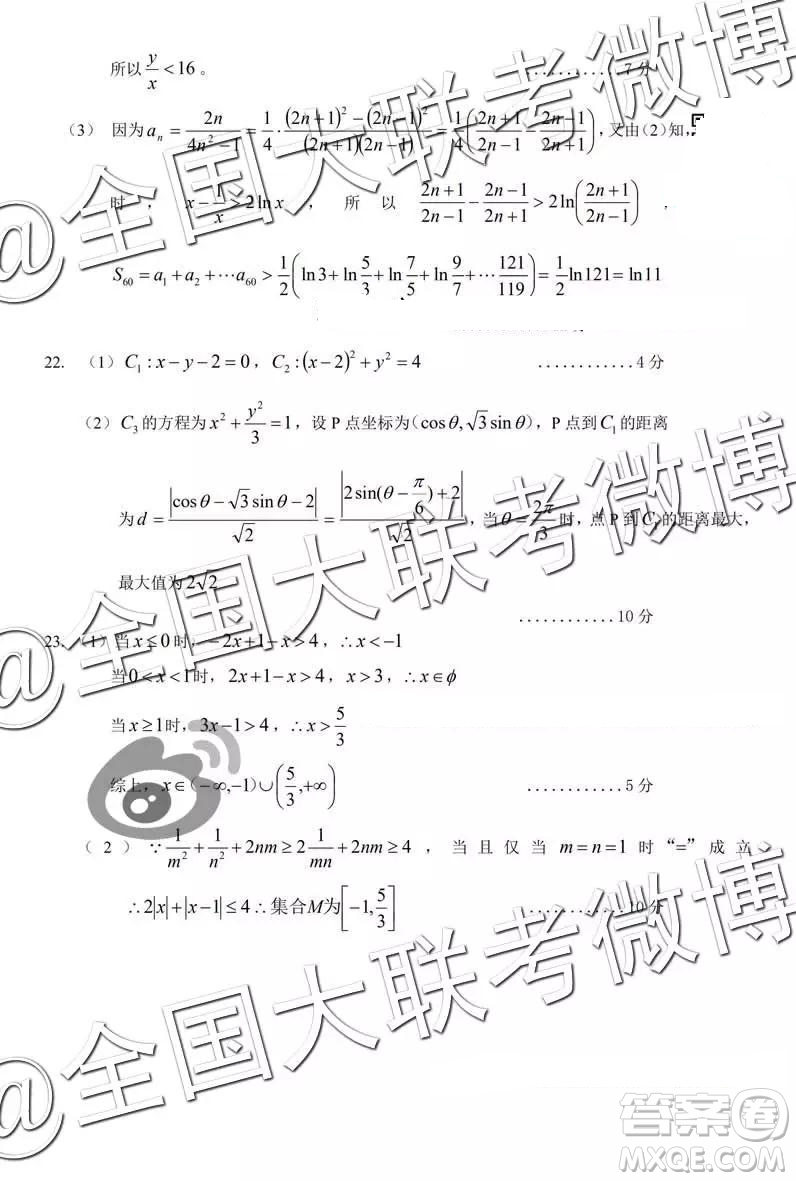 所以 y/x < 16 。 …………7分
(3) 因为 a_n = 2n/(4n²−1) = 1/4 · ((2n+1)²−(2n−1)²)/((2n+1)(2n−1)) = 1/4((2n+1)/(2n−1) − (2n−1)/(2n+1)), 又由(2)知,
时 , x − 1/x > 2 ln x , 所以 (2n+1)/(2n−1) − (2n−1)/(2n+1) > 2ln((2n+1)/(2n−1)) ,
S₆₀ = a₁ + a₂ + ⋯a₆₀ > 1/2(ln 3 + ln 5/3 + ln 7/5 + ln 9/7 + ⋯ 121/119) = 1/2 ln 121 = ln 11
22. (1) C₁ : x − y − 2 = 0 , C₂ : (x−2)² + y² = 4 …………4分
(2) C₃ 的方程为 x² + y²/3 = 1 , 设 P 点坐标为 (cos θ, √3 sin θ) , P 点到 C₁ 的距离
为 d = |cos θ − √3 sin θ − 2|/√2 = |2 sin(θ − π/6) + 2|/√2 , 当 θ = 2π/3 时, 点 P 到 C₁ 的距离最大,
最大值为 2√2
…………10分
23. (1) 当 x ≤ 0 时, −2x + 1 − x > 4 , ∴ x < −1
当 0 < x < 1 时, 2x + 1 − x > 4 , x > 3 , ∴ x ∈ ϕ
当 x ≥ 1 时, 3x − 1 > 4 , ∴ x > 5/3
综上, x ∈ (−∞, −1) ∪ (5/3, +∞) …………5分
(2) ∵ 1/m² + 1/n² + 2nm ≥ 2 1/mn + 2nm ≥ 4 , 当且仅当 m = n = 1 时 “=” 成立,
∴ 2|x| + |x − 1| ≤ 4 ∴ 集合 M 为 [−1, 5/3] …………10分
@全国大联考微博
@全国大联考微博
@全国大联考微博
答案卷
MXQE.COM